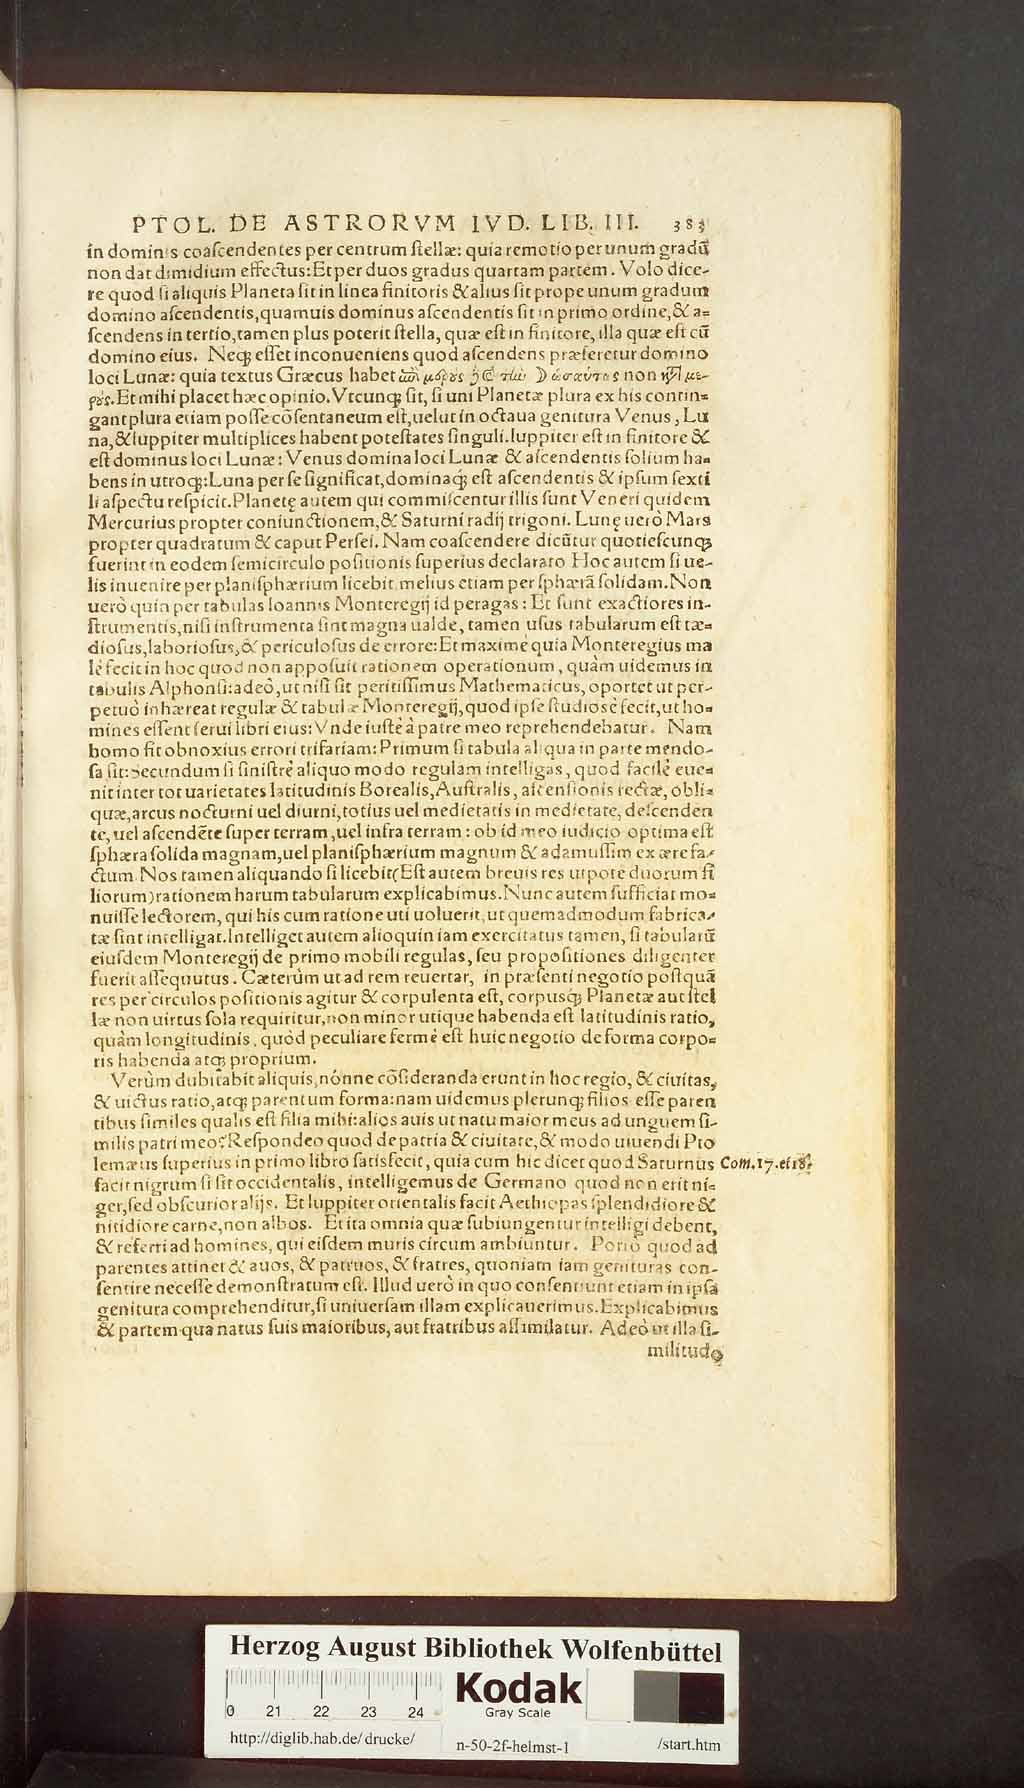 PTOL. DE ASTRORVM IVD. LIB. III. 383
in dominis coaſcendentes per centrum ſtellæ: quia remotio per unum gradũ
non dat dimidium effectus: Et per duos gradus quartam partem. Volo dice-
re quod ſi aliquis Planeta ſit in linea finitoris & alius ſit prope unum gradum
domino aſcendentis, quamuis dominus aſcendentis ſit in primo ordine, & a=
ſcendens in tertio, tamen plus poterit ſtella, quæ eſt in finitore, illa quæ eſt cũ
domino eius. Neq; eſſet inconueniens quod aſcendens præferetur domino
loci Lunæ: quia textus Græcus habet μέρους ☽ ὡσαύτως non με-
ρους. Et mihi placet hæc opinio. Vtcunq; ſit, ſi uni Planetæ plura ex his contin=
gant plura etiam poſſe cõſentaneum eſt, uelut in octaua genitura Venus, Lu
na, & Iuppiter multiplices habent poteſtates ſinguli. Iuppiter eſt in finitore &
eſt dominus loci Lunæ: Venus domina loci Lunæ & aſcendentis ſolium ha-
bens in utroq;: Luna per ſe ſignificat, dominaq; eſt aſcendentis & ipſum ſexti
li aſpectu reſpicit. Planetę autem qui commiſcentur illis ſunt Veneri quidem
Mercurius propter coniunctionem, & Saturni radij trigoni. Lunę uerò Mars
propter quadratum & caput Perſei. Nam coaſcendere dicũtur quotieſcunq;
fuerint in eodem ſemicirculo poſitionis ſuperius declarato Hoc autem ſi ue-
lis inuenire per planiſphærium licebit, melius etiam per ſphærã ſolidam. Non
uerò quin per tabulas Ioannis Monteregij id peragas: Et ſunt exactiores in-
ſtrumentis, niſi inſtrumenta ſint magna ualde, tamen uſus tabularum eſt tæ=
dioſus, laborioſus, & periculoſus de errore: Et maximè quia Monteregius ma
lè fecit in hoc quod non appoſuit rationem operationum, quàm uidemus in
tabulis Alphonſi: adeò, ut niſi ſit peritiſſimus Mathematicus, oportet ut per-
petuò inhæreat regulæ & tabulæ Monteregij, quod ipſe ſtudiosè fecit, ut ho=
mines eſſent ſerui libri eius: Vnde iuſtè à patre meo reprehendebatur. Nam
homo fit obnoxius errori trifariam: Primum ſi tabula aliqua in parte mendo-
ſa ſit: Secundum ſi ſiniſtrè aliquo modo regulam intelligas, quod facilè eue=
nit inter tot uarietates latitudinis Borealis, Auſtralis, aſcenſionis rectæ, obli=
quæ, arcus nocturni uel diurni, totius uel medietatis in medietate, deſcenden
te, uel aſcendẽte ſuper terram, uel infra terram: ob id meo iudicio optima eſt
ſphæra ſolida magnam, uel planiſphærium magnum & adamuſſim ex ære fa-
ctum. Nos tamen aliquando ſi licebit (Eſt autem breuis res utpote duorum fi
liorum) rationem harum tabularum explicabimus. Nunc autem ſufficiat mo=
nuiſſe lectorem, qui his cum ratione uti uoluerit, ut quemadmodum fabrica-
tæ ſint intelligat. Intelliget autem alioquin iam exercitatus tamen, ſi tabularũ
eiuſdem Monteregij de primo mobili regulas, ſeu propoſitiones diligenter
fuerit aſſequutus. Cæterùm ut ad rem reuertar, in præſenti negotio poſtquã
res per circulos poſitionis agitur & corpulenta eſt, corpusq; Planetæ aut ſtel
læ non uirtus ſola requiritur, non minor utique habenda eſt latitudinis ratio,
quàm longitudinis, quòd peculiare fermè eſt huic negotio de forma corpo=
ris habenda atq; proprium.
Verùm dubitabit aliquis, nónne cõſideranda erunt in hoc regio, & ciuitas,
& uictus ratio, atq; parentum forma: nam uidemus plerunq; filios eſſe paren
tibus ſimiles qualis eſt filia mihi: alios auis ut natu maior meus ad unguem ſi-
milis patri meo? Reſpondeo quod de patria & ciuitate, & modo uiuendi Pto
lemæus ſuperius in primo libro ſatisfecit, quia cum hic dicet quod Saturnus Com. 17. et 18.
facit nigrum ſi ſit occidentalis, intelligemus de Germano quod non erit ni-
ger, ſed obſcurior alijs. Et Iuppiter orientalis facit Aethiopas ſplendidiore &
nitidiore carne, non albos. Et ita omnia quæ ſubiungentur intelligi debent,
& referri ad homines, qui eiſdem muris circum ambiuntur. Porrò quod ad
parentes attinet & auos, & patruos, & fratres, quoniam iam genituras con-
ſentire neceſſe demonſtratum eſt. Illud uerò in quo conſentiunt etiam in ipſa
genitura comprehenditur, ſi uniuerſam illam explicauerimus. Explicabimus
& partem qua natus ſuis maioribus, aut fratribus aſſimilatur. Adeò ut illa ſi-
militudo
Herzog August Bibliothek Wolfenbüttel
0 21 22 23 24
Kodak
Gray Scale
http://diglib.hab.de/drucke/ n-50-2f-helmst-1 /start.htm